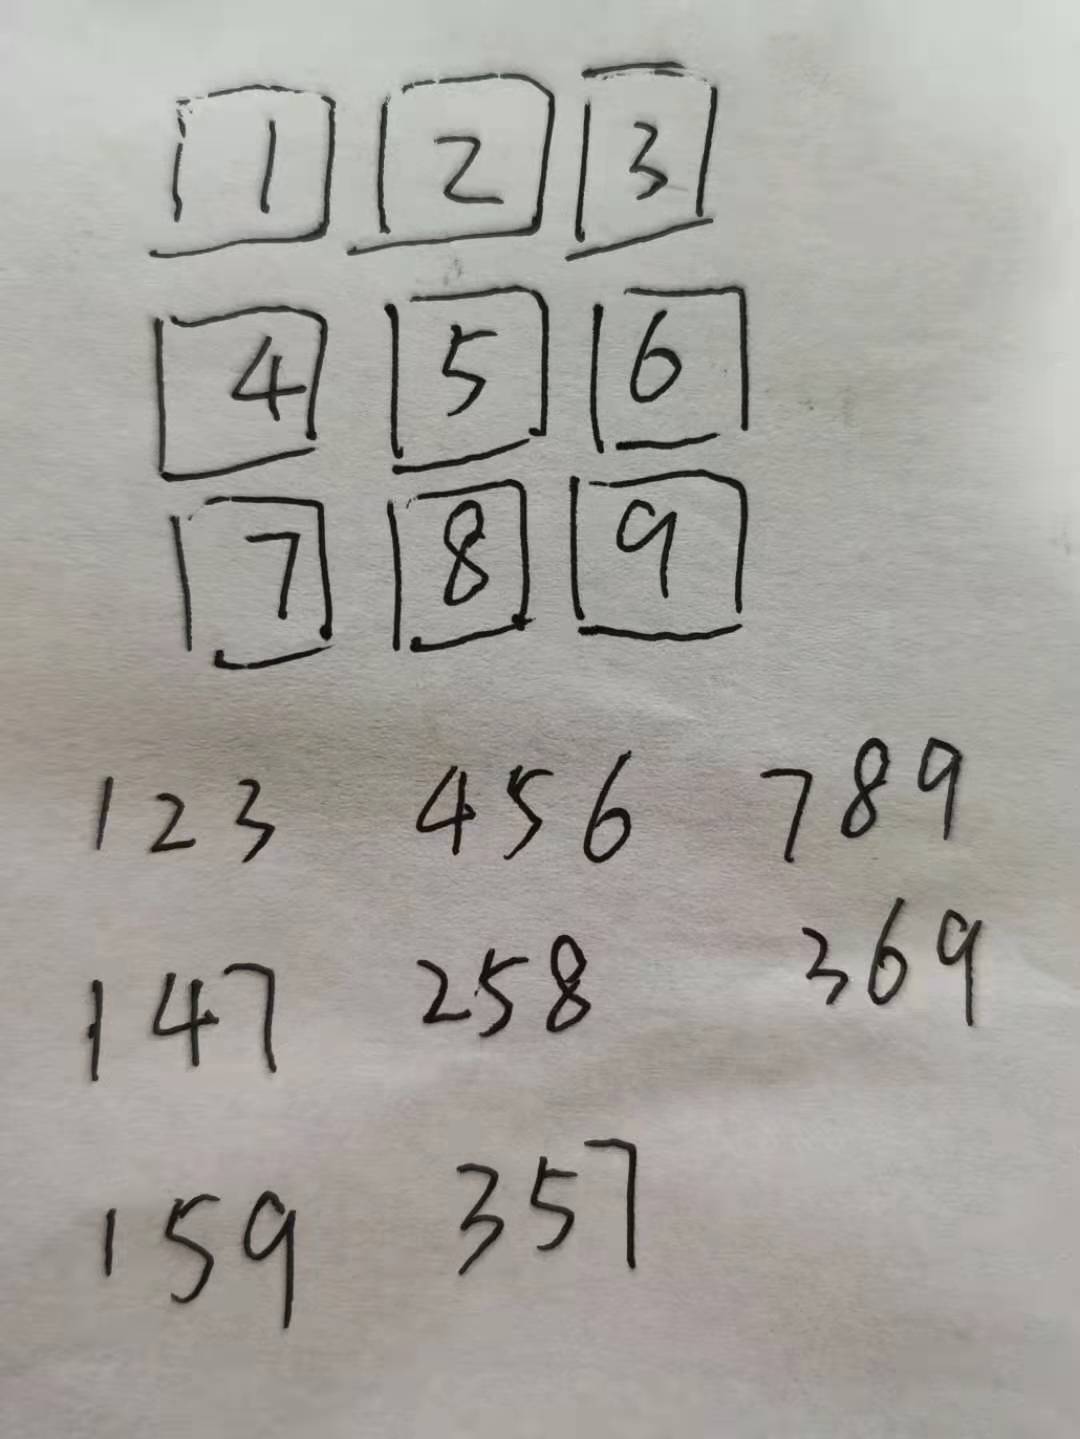 1 2 3
4 5 6
7 8 9
123 456 789
147 258 369
159 357